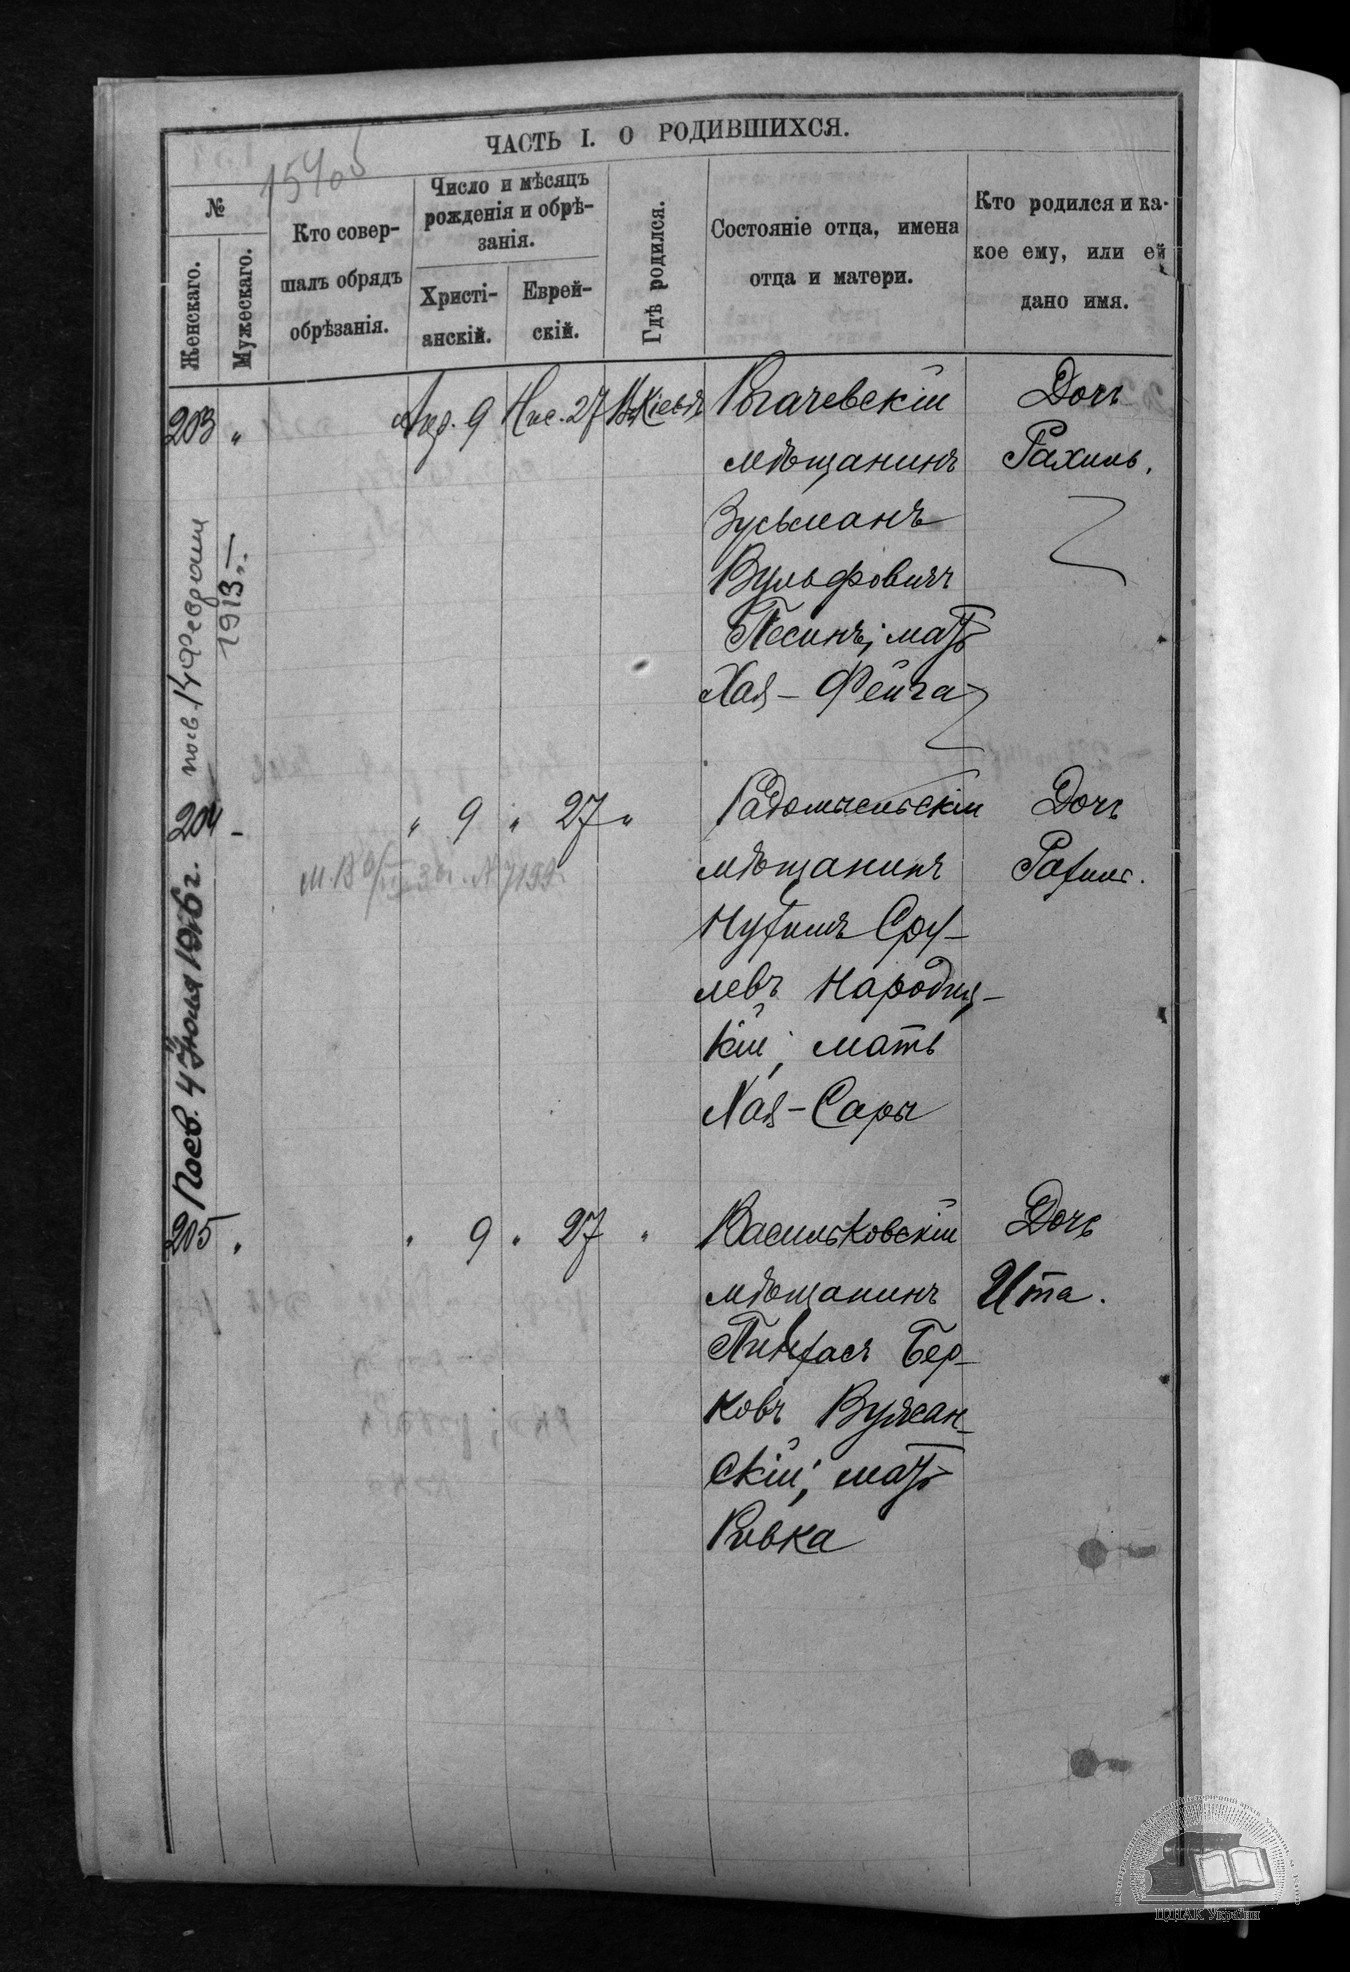 ЧАСТЬ I. О РОДИВШИХСЯ.
15405
№
Женскаго.
Мужескаго.
Кто совер-
шалъ обрядъ
обрѣзанія.
Число и мѣсяцъ
рожденія и обрѣ-
занія.
Христі-
анскій.
Еврей-
скій.
Гдѣ родился.
Состояніе отца, имена
отца и матери.
Кто родился и ка-
кое ему, или ей
дано имя.
203 „ Апр. 9 Нис. 27 Въ Кіевѣ
Рогачевскій
мѣщанинъ
Зусьманъ
Вульфовичъ
Песинъ; мать
Хая-Фейга
Дочь
Рахиль.
посв. 14 февраля
1913.
204 - „ 9 „ 27 „
Радомысльскій
мѣщанинъ
Нухимъ Сру-
левъ Народиц-
кій; мать
Хая-Сары
Дочь
Рахиль.
Посв. 4 Іюля 1916 г.
205 „ „ 9 „ 27 „
Васильковскій
мѣщанинъ
Пинхасъ Бер-
ковъ Вулсан-
скій; мать
Ривка
Дочь
Ита.
ЦДІАК України